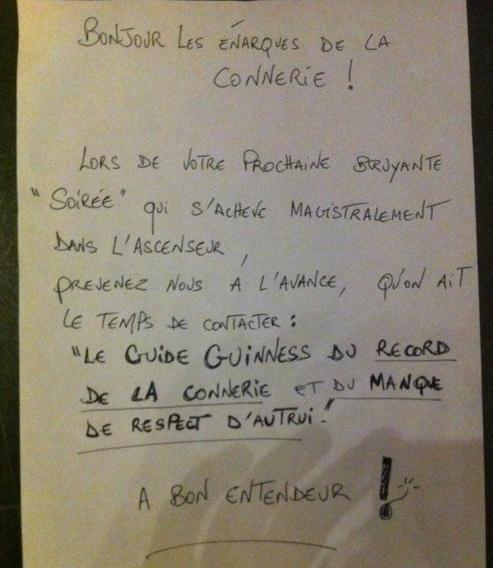 BONJOUR LES ÉNARQUES DE LA
CONNERIE !
LORS DE VOTRE PROCHAINE BRUYANTE
"SOIRÉE" qui S'ACHEVE MAGISTRALEMENT
DANS L'ASCENSEUR,
PREVENEZ NOUS A L'AVANCE, QU'ON AIT
LE TEMPS DE CONTACTER :
"LE GUIDE GUINNESS DU RECORD
DE LA CONNERIE ET DU MANQUE
DE RESPECT D'AUTRUI."
A BON ENTENDEUR !